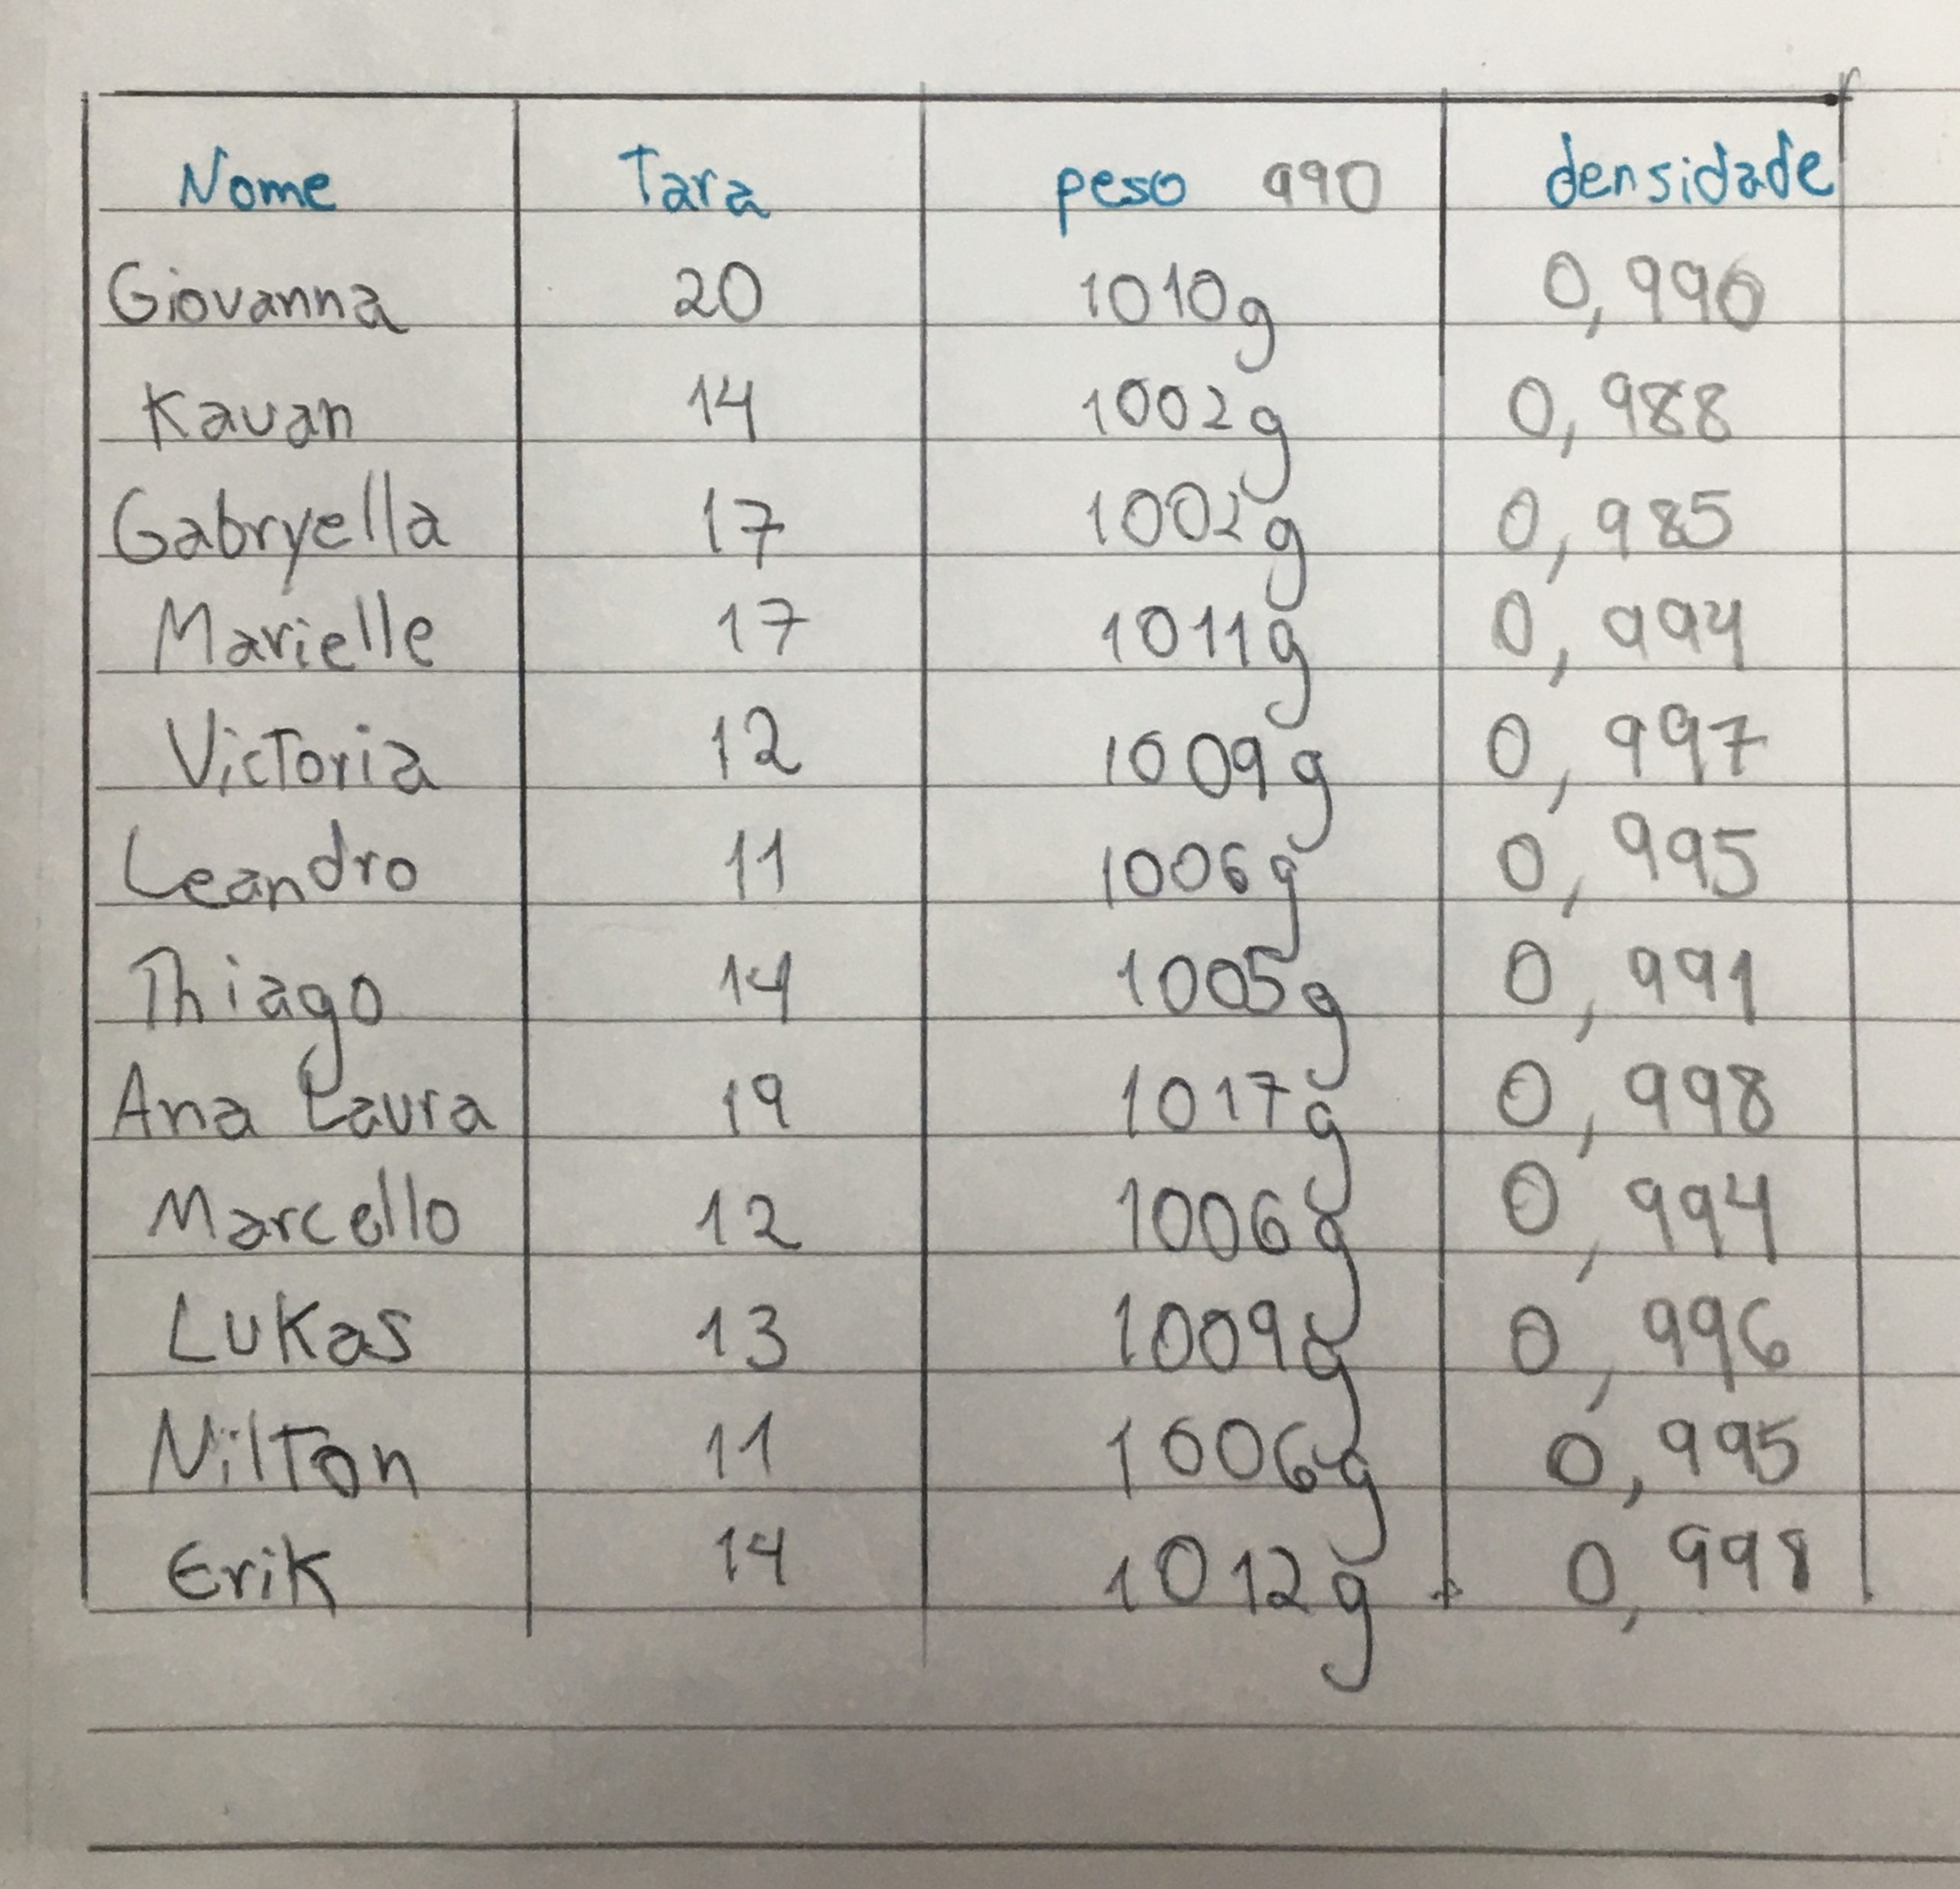 Nome Tara peso 990 densidade
Giovanna 20 1010g 0,990
Kauan 14 1002g 0,988
Gabryella 17 1002g 0,985
Marielle 17 1011g 0,994
Victoria 12 1009g 0,997
Leandro 11 1006g 0,995
Thiago 14 1005g 0,991
Ana Laura 19 1017g 0,998
Marcello 12 1006g 0,994
Lukas 13 1009g 0,996
Nilton 11 1006g 0,995
Erik 14 1012g 0,998